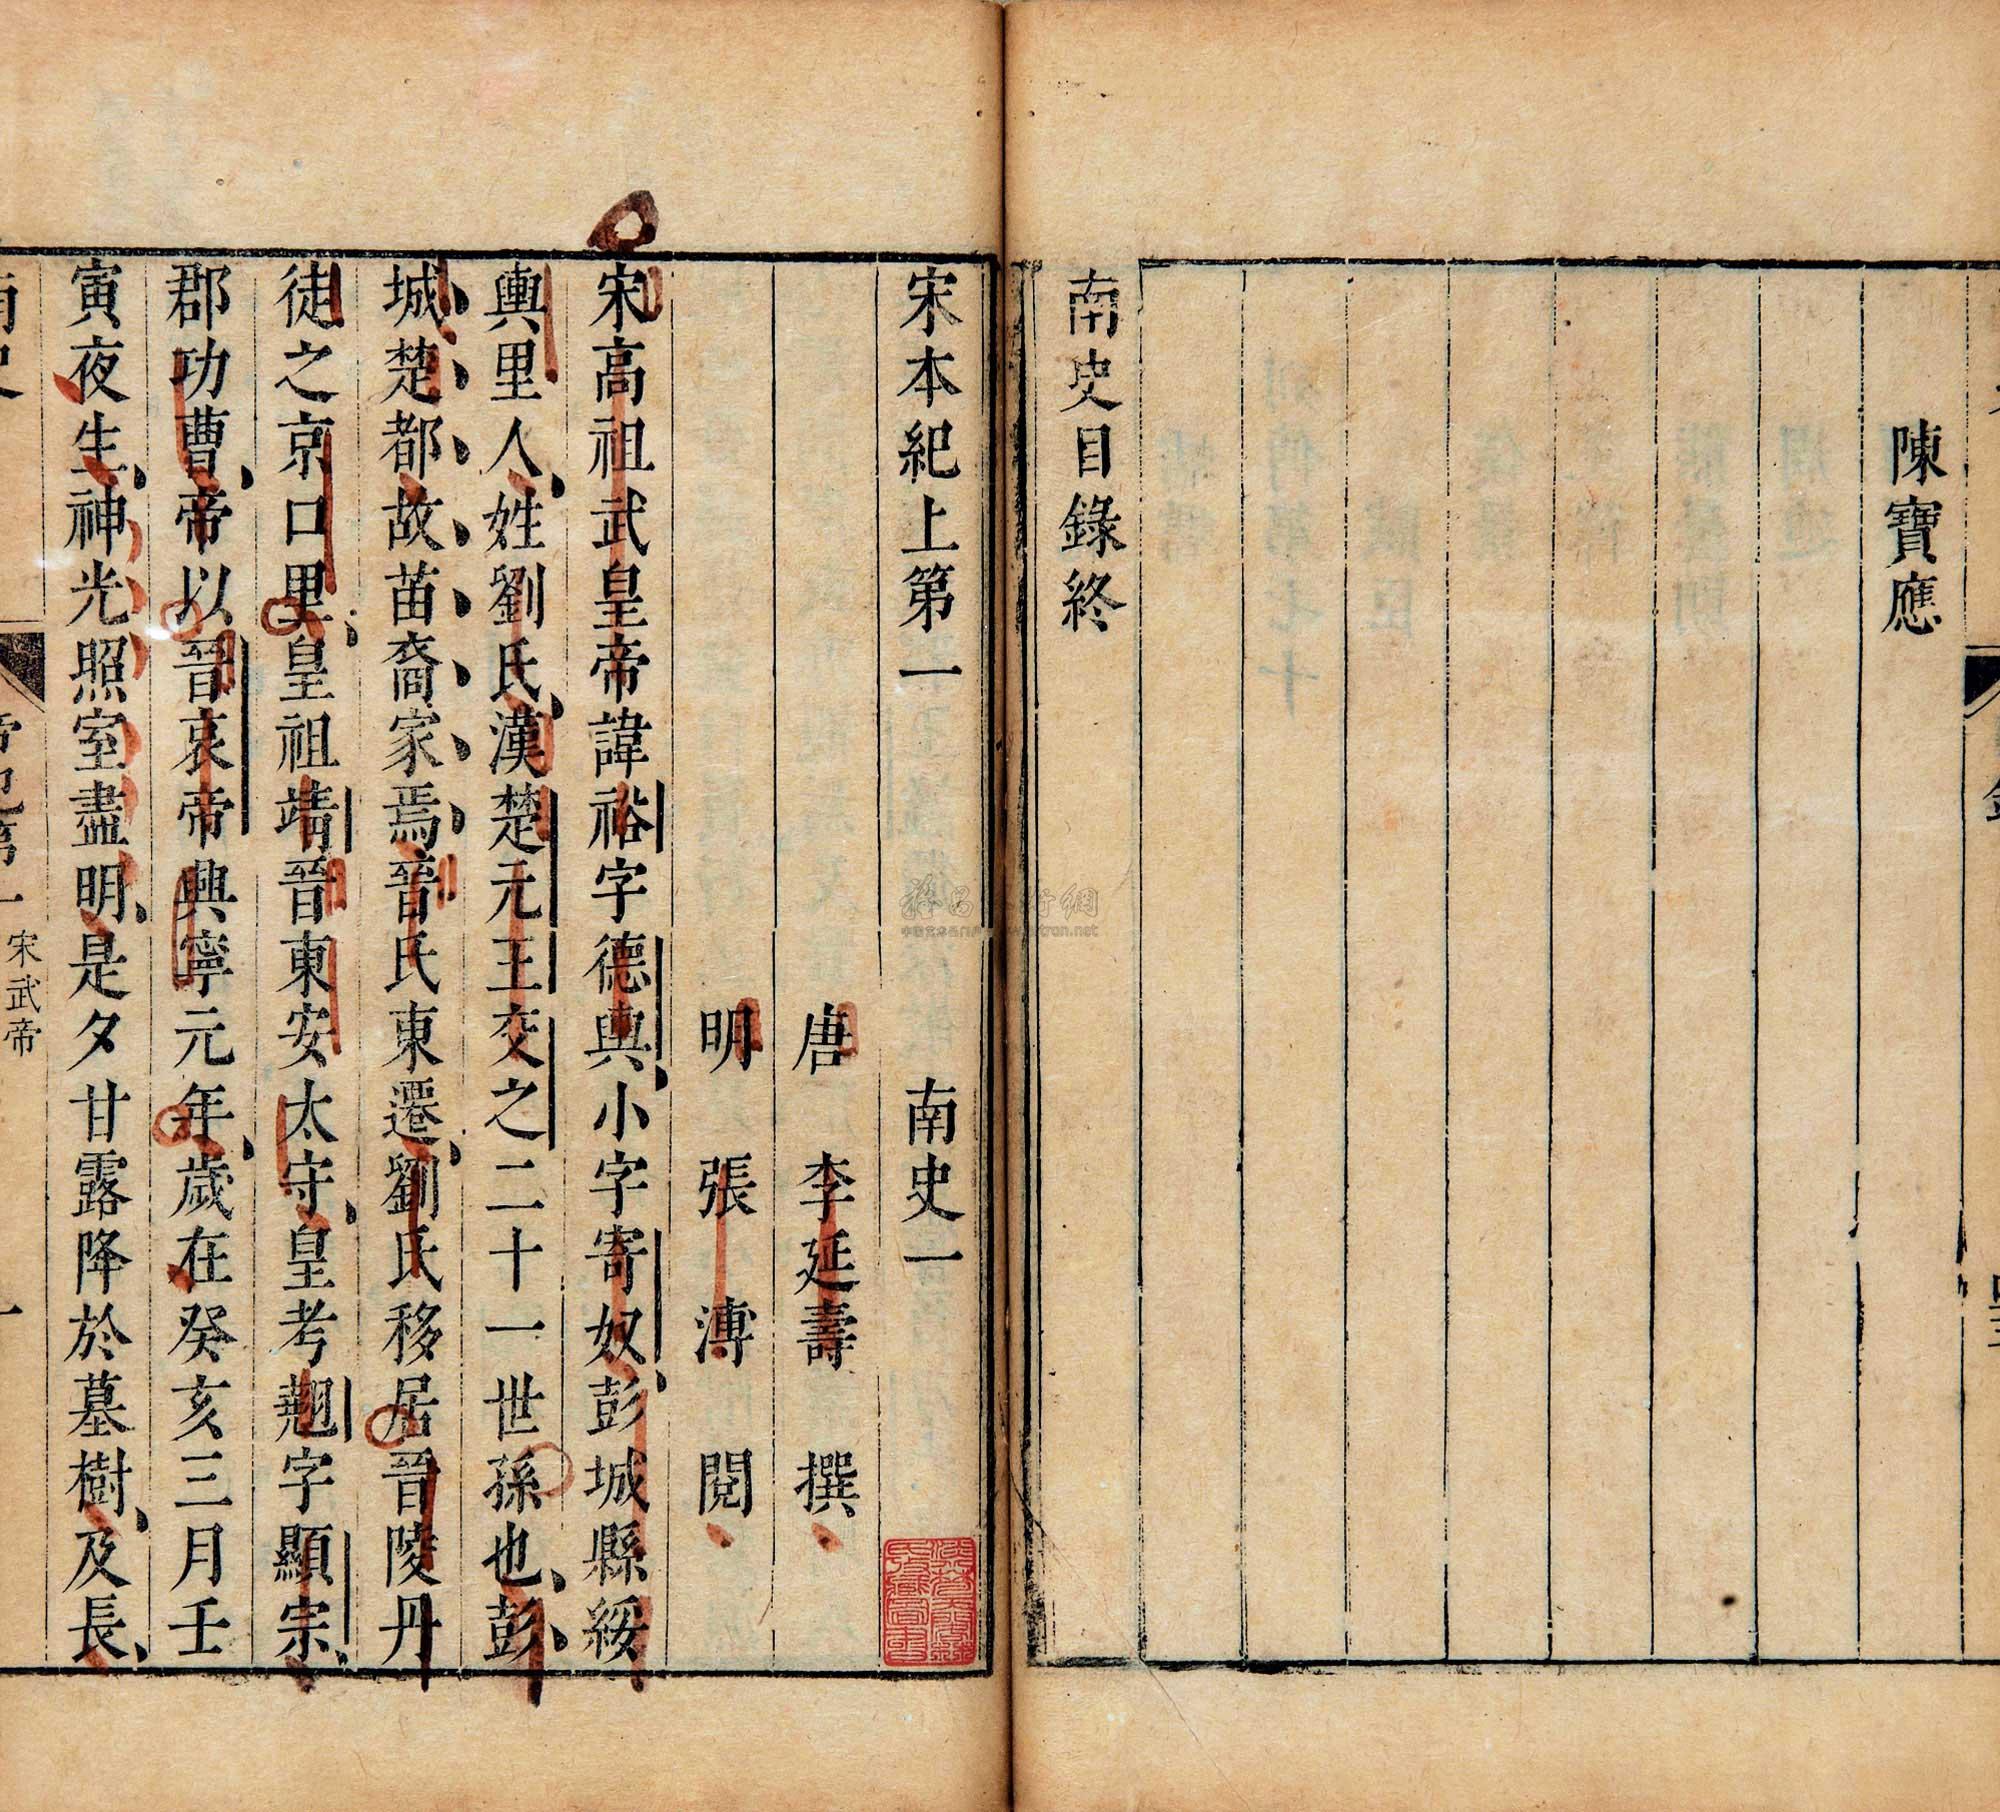 陳寶應
南史目錄終
宋本紀上第一 南史一
唐 李延壽 撰
明 張溥 閱
宋高祖武皇帝諱裕字德輿小字寄奴彭城縣綏
輿里人姓劉氏漢楚元王交之二十一世孫也彭
城楚都故苗裔家焉晉氏東遷劉氏移居晉陵丹
徒之京口里皇祖靖晉東安太守皇考翹字顯宗
郡功曹帝以晉哀帝興寧元年歲在癸亥三月壬
寅夜生神光照室盡明是夕甘露降於墓樹及長
南史 帝紀第一 宋武帝 一